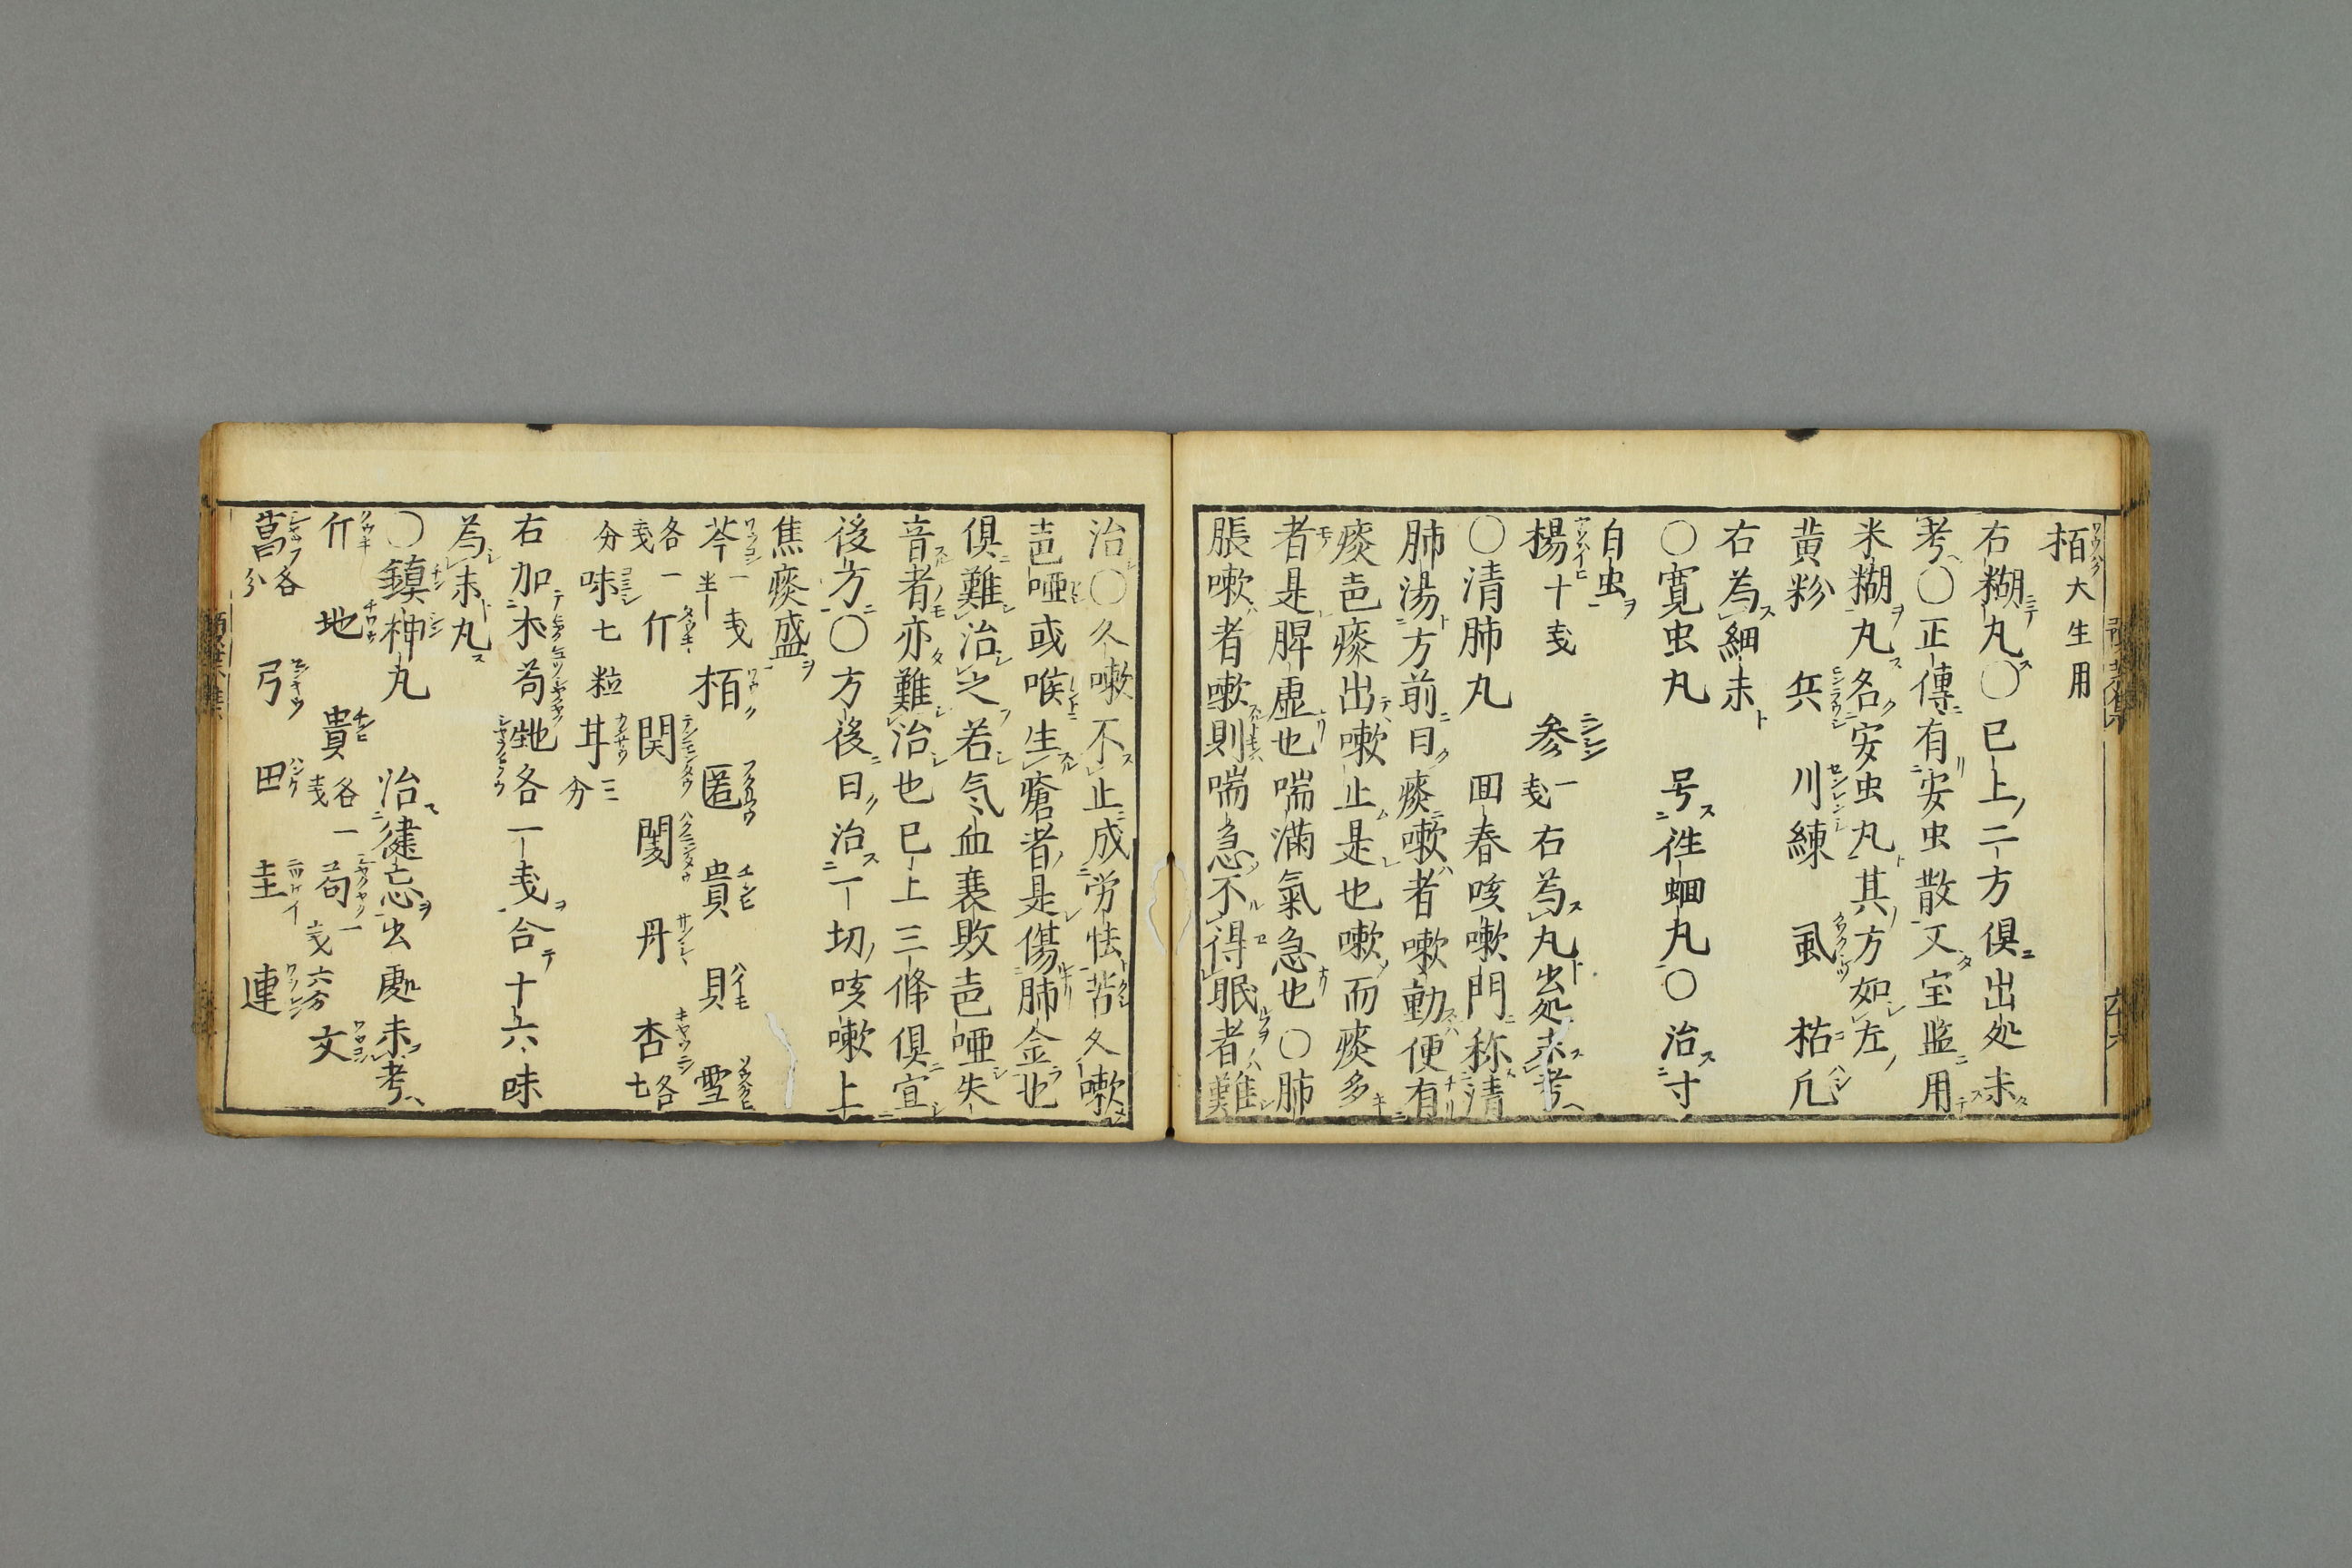 栢大生用
右糊丸〇巳上二方倶出処未
考〇正傳有安虫散又宝監用
米糊丸名安虫丸其方如左
黄粉 兵 川練 虱 枯凢
右為細末
〇寛虫丸 号徃蛔丸〇治寸
白虫
楊十戔 参一戔右為丸出処未考
〇清肺丸 囬春咳嗽門称清
肺湯方前曰痰嗽者嗽動便有
痰㐵痰出嗽止是也嗽而痰多
者是脾虚也喘滿氣急也〇肺
脹嗽者嗽則喘急不得眠者難
治〇久嗽不止成労怯苦久嗽
㐵啞或喉生瘡者是傷肺金也
倶難治之若気血衰敗㐵啞失
音者亦難治也巳上三條倶宜
後方〇方後曰治一切咳嗽上
焦痰盛
芩一戔半 栢 匿 貴 貝 雪
各一戔 㣔 関 門 丹 杏各七
分 味七粒 耳三分
右加朮芍地各一戔合十六味
為末丸
〇鎮神丸 治徤忘出處未考
㣔 地 貴各一戔 芍一戔六分 文
菖各分 弓 田 圭 連